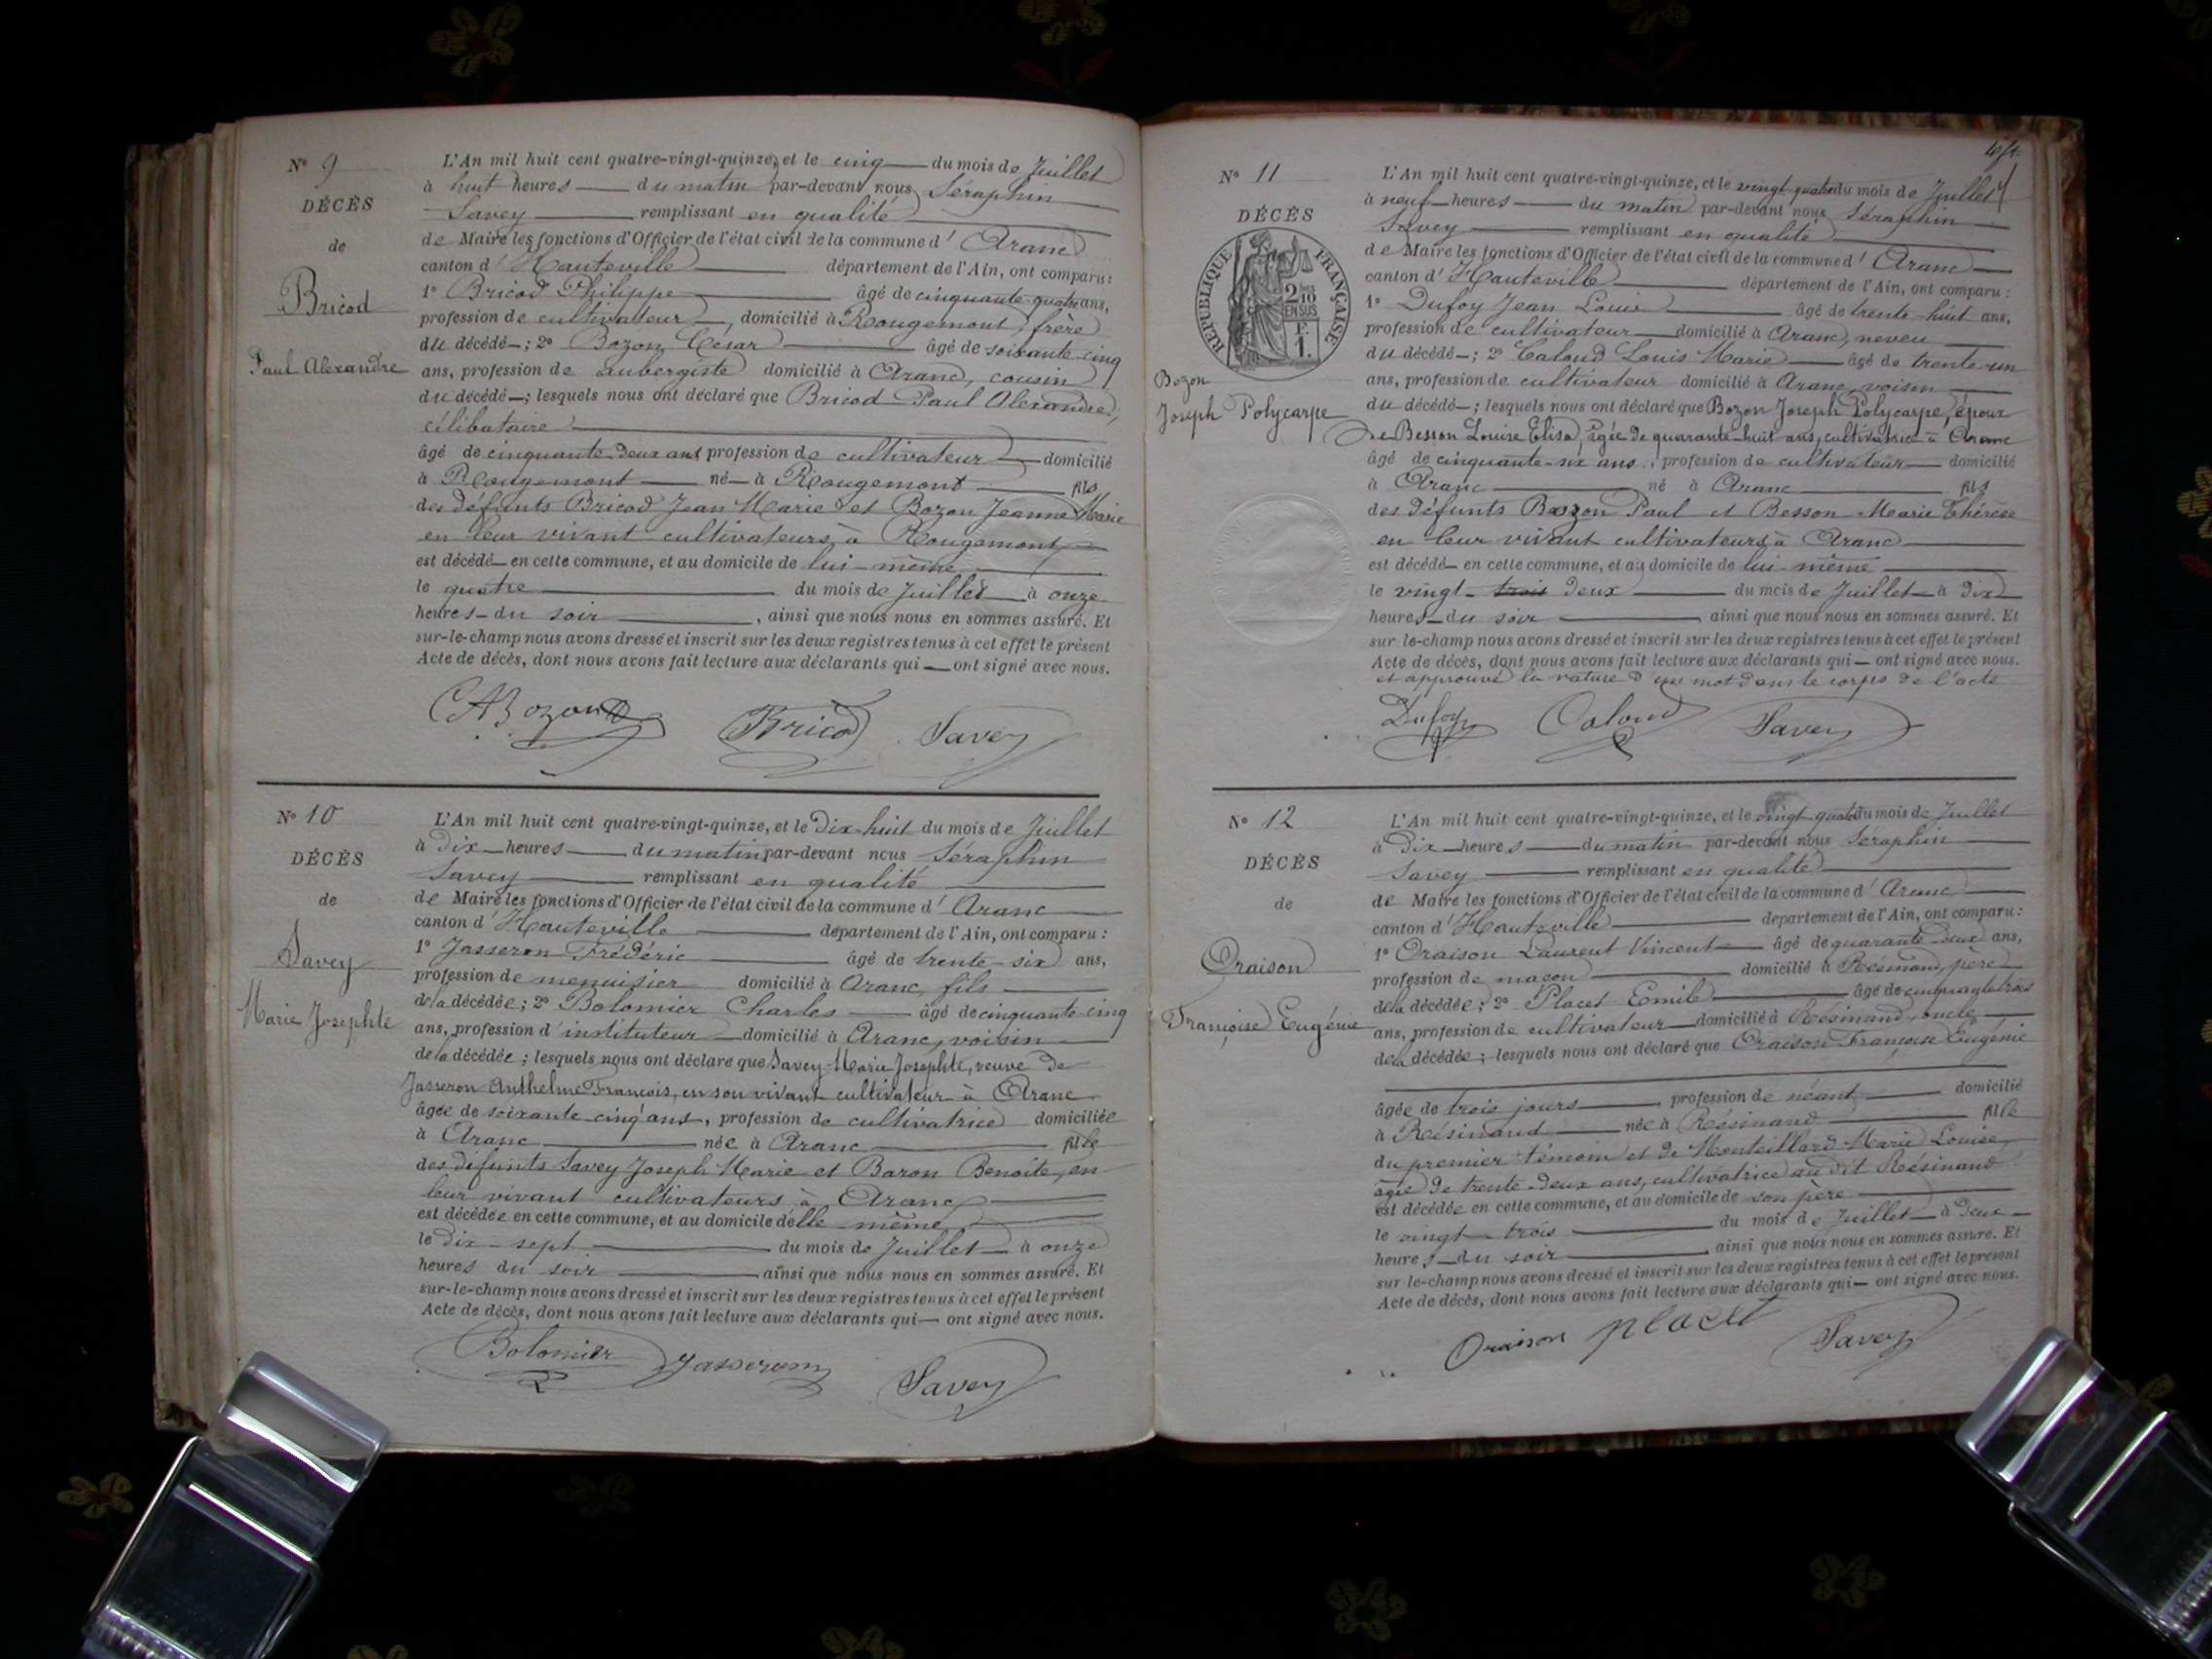 N° 9
DÉCÈS
de
Bricod
Paul Alexandre
L'An mil huit cent quatre-vingt-quinze, et le cinq du mois de Juillet
à huit heures du matin par-devant nous Séraphin
Savey remplissant en qualité
de Maire les fonctions d'Officier de l'état civil de la commune d'Aranc
canton d'Hauteville département de l'Ain, ont comparu :
1° Bricod Philippe âgé de cinquante-quatre ans,
profession de cultivateur, domicilié à Rougemont, frère
du décédé ; 2° Bozon César âgé de soixante-cinq
ans, profession de aubergiste domicilié à Aranc, cousin
du décédé ; lesquels nous ont déclaré que Bricod Paul Alexandre,
célibataire
âgé de cinquante-deux ans profession de cultivateur domicilié
à Rougemont né à Rougemont fils
des défunts Bricod Jean Marie et Bozon Jeanne Marie
en leur vivant cultivateurs à Rougemont
est décédé en cette commune, et au domicile de lui-même
le quatre du mois de Juillet à onze
heures du soir, ainsi que nous nous en sommes assuré. Et
sur-le-champ nous avons dressé et inscrit sur les deux registres tenus à cet effet le présent
Acte de décès, dont nous avons fait lecture aux déclarants qui ont signé avec nous.
Bozon Bricod Savey
N° 10
DÉCÈS
de
Savey
Marie Josephte
L'An mil huit cent quatre-vingt-quinze, et le Dix-huit du mois de Juillet
à Dix heures du matin par-devant nous Séraphin
Savey remplissant en qualité
de Maire les fonctions d'Officier de l'état civil de la commune d'Aranc
canton d'Hauteville département de l'Ain, ont comparu :
1° Jasseron Frédéric âgé de trente-six ans,
profession de menuisier domicilié à Aranc, fils
de la décédée ; 2° Bolomier Charles âgé de cinquante-cinq
ans, profession d'instituteur domicilié à Aranc, voisin
de la décédée ; lesquels nous ont déclaré que Savey Marie Josephte, veuve de
Jasseron Anthelme François, en son vivant cultivateur à Aranc
âgée de soixante-cinq ans, profession de cultivatrice domiciliée
à Aranc née à Aranc fille
des défunts Savey Joseph Marie et Baron Benoite, en
leur vivant cultivateurs à Aranc
est décédée en cette commune, et au domicile d'elle-même
le dix-sept du mois de Juillet à onze
heures du soir ainsi que nous nous en sommes assuré. Et
sur-le-champ nous avons dressé et inscrit sur les deux registres tenus à cet effet le présent
Acte de décès, dont nous avons fait lecture aux déclarants qui ont signé avec nous.
Bolomier Jasseron Savey
N° 11
DÉCÈS
RÉPUBLIQUE FRANÇAISE
2/10 EN SUS
F. 1.
Bozon
Joseph Polycarpe
L'An mil huit cent quatre-vingt-quinze, et le vingt-quatre du mois de Juillet
à neuf heures du matin par-devant nous Séraphin
Savey remplissant en qualité
de Maire les fonctions d'Officier de l'état civil de la commune d'Aranc
canton d'Hauteville département de l'Ain, ont comparu :
1° Dufoy Jean Louis âgé de trente-huit ans,
profession de cultivateur domicilié à Aranc, neveu
du décédé ; 2° Caloud Louis Marie âgé de trente-un
ans, profession de cultivateur domicilié à Aranc, voisin
du décédé ; lesquels nous ont déclaré que Bozon Joseph Polycarpe, époux
de Besson Louise Elisa, âgée de quarante-huit ans, cultivatrice à Aranc
âgé de cinquante-six ans, profession de cultivateur domicilié
à Aranc né à Aranc fils
des défunts Bozon Paul et Besson Marie Thérèse
en leur vivant cultivateurs à Aranc
est décédé en cette commune, et au domicile de lui-même
le vingt-trois deux du mois de Juillet à Dix
heures du soir ainsi que nous nous en sommes assuré. Et
sur le-champ nous avons dressé et inscrit sur les deux registres tenus à cet effet le présent
Acte de décès, dont nous avons fait lecture aux déclarants qui ont signé avec nous.
et approuvé la rature d'un mot dans le corps de l'acte
Dufoy Caloud Savey
N° 12
DÉCÈS
de
Oraison
Françoise Eugénie
L'An mil huit cent quatre-vingt-quinze, et le vingt-quatre du mois de Juillet
à Dix heures du matin par-devant nous Séraphin
Savey remplissant en qualité
de Maire les fonctions d'Officier de l'état civil de la commune d'Aranc
canton d'Hauteville département de l'Ain, ont comparu :
1° Oraison Laurent Vincent âgé de quarante-deux ans,
profession de maçon domicilié à Résinand, père
de la décédée ; 2° Placet Emile âgé de cinquante-trois
ans, profession de cultivateur domicilié à Résinand, oncle
de la décédée ; lesquels nous ont déclaré que Oraison Françoise Eugénie
âgée de trois jours profession de néant domicilié
à Résinand née à Résinand fille
du premier témoin et de Monteillard Marie Louise,
âgée de trente-deux ans, cultivatrice au dit Résinand
est décédée en cette commune, et au domicile de son père
le vingt-trois du mois de Juillet à Deux
heures du soir ainsi que nous nous en sommes assuré. Et
sur-le-champ nous avons dressé et inscrit sur les deux registres tenus à cet effet le présent
Acte de décès, dont nous avons fait lecture aux déclarants qui ont signé avec nous.
Oraison placet Savey